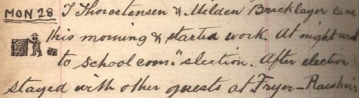 MON 28 T Thorstensen & Milden Bricklayer came
this morning & started work. At night went
to school com. election. After election
stayed with other guests at Fryer-